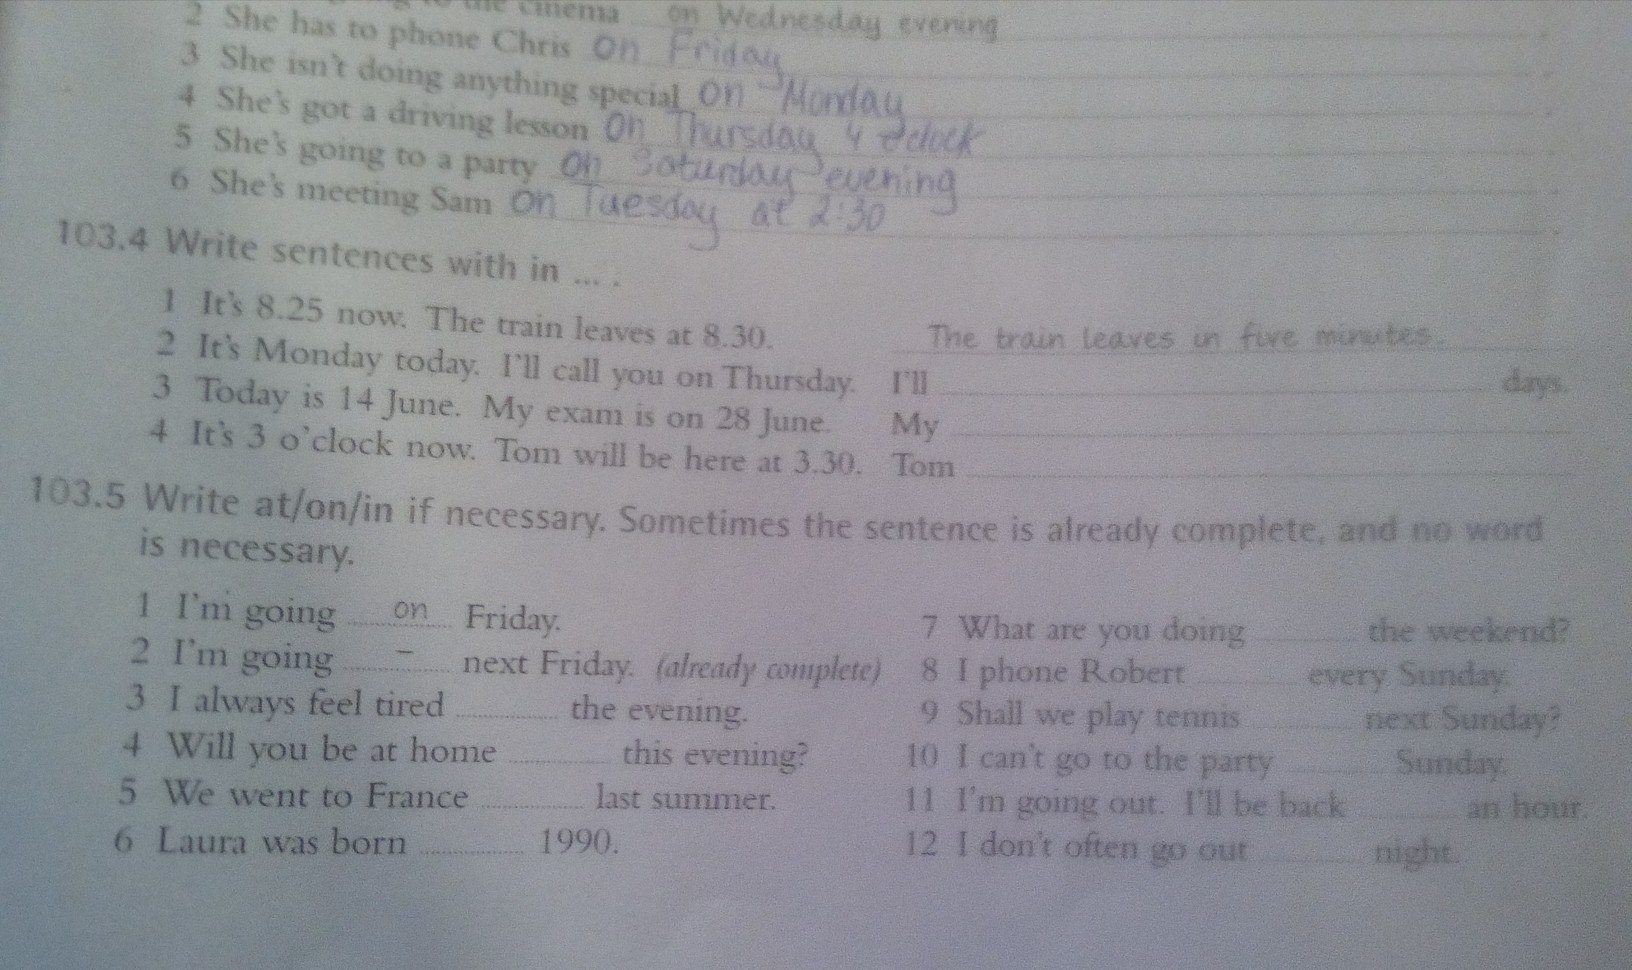 to the cinema on Wednesday evening
2 She has to phone Chris on Friday
3 She isn't doing anything special on Monday
4 She's got a driving lesson on Thursday 4 o'clock
5 She's going to a party on Saturday evening
6 She's meeting Sam on Tuesday at 2:30
103.4 Write sentences with in ... .
1 It's 8.25 now. The train leaves at 8.30. The train leaves in five minutes.
2 It's Monday today. I'll call you on Thursday. I'll days.
3 Today is 14 June. My exam is on 28 June. My
4 It's 3 o'clock now. Tom will be here at 3.30. Tom
103.5 Write at/on/in if necessary. Sometimes the sentence is already complete, and no word
is necessary.
1 I'm going on Friday.
2 I'm going – next Friday. (already complete)
3 I always feel tired the evening.
4 Will you be at home this evening?
5 We went to France last summer.
6 Laura was born 1990.
7 What are you doing the weekend?
8 I phone Robert every Sunday.
9 Shall we play tennis next Sunday?
10 I can't go to the party Sunday.
11 I'm going out. I'll be back an hour.
12 I don't often go out night.